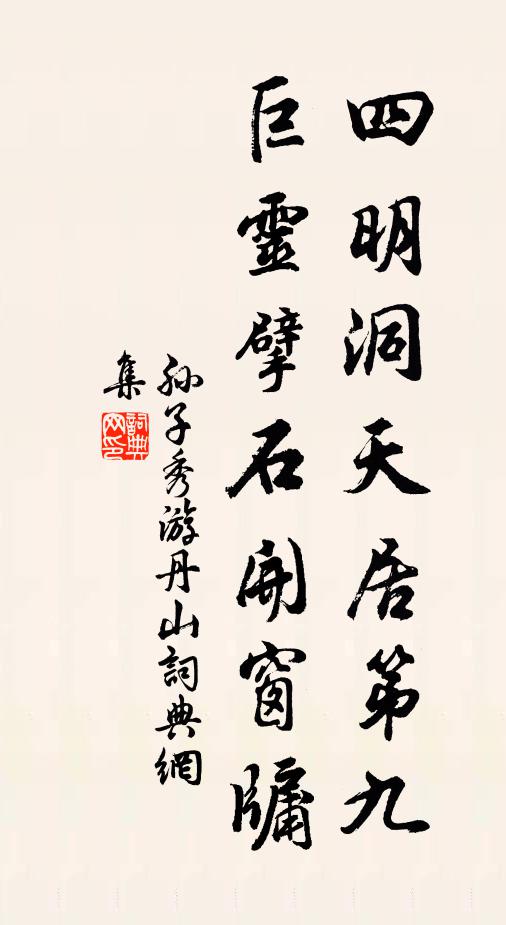 四明洞天居第九
巨靈擘石開窗牖
孫子秀游丹山詞典網
集
詞典网印